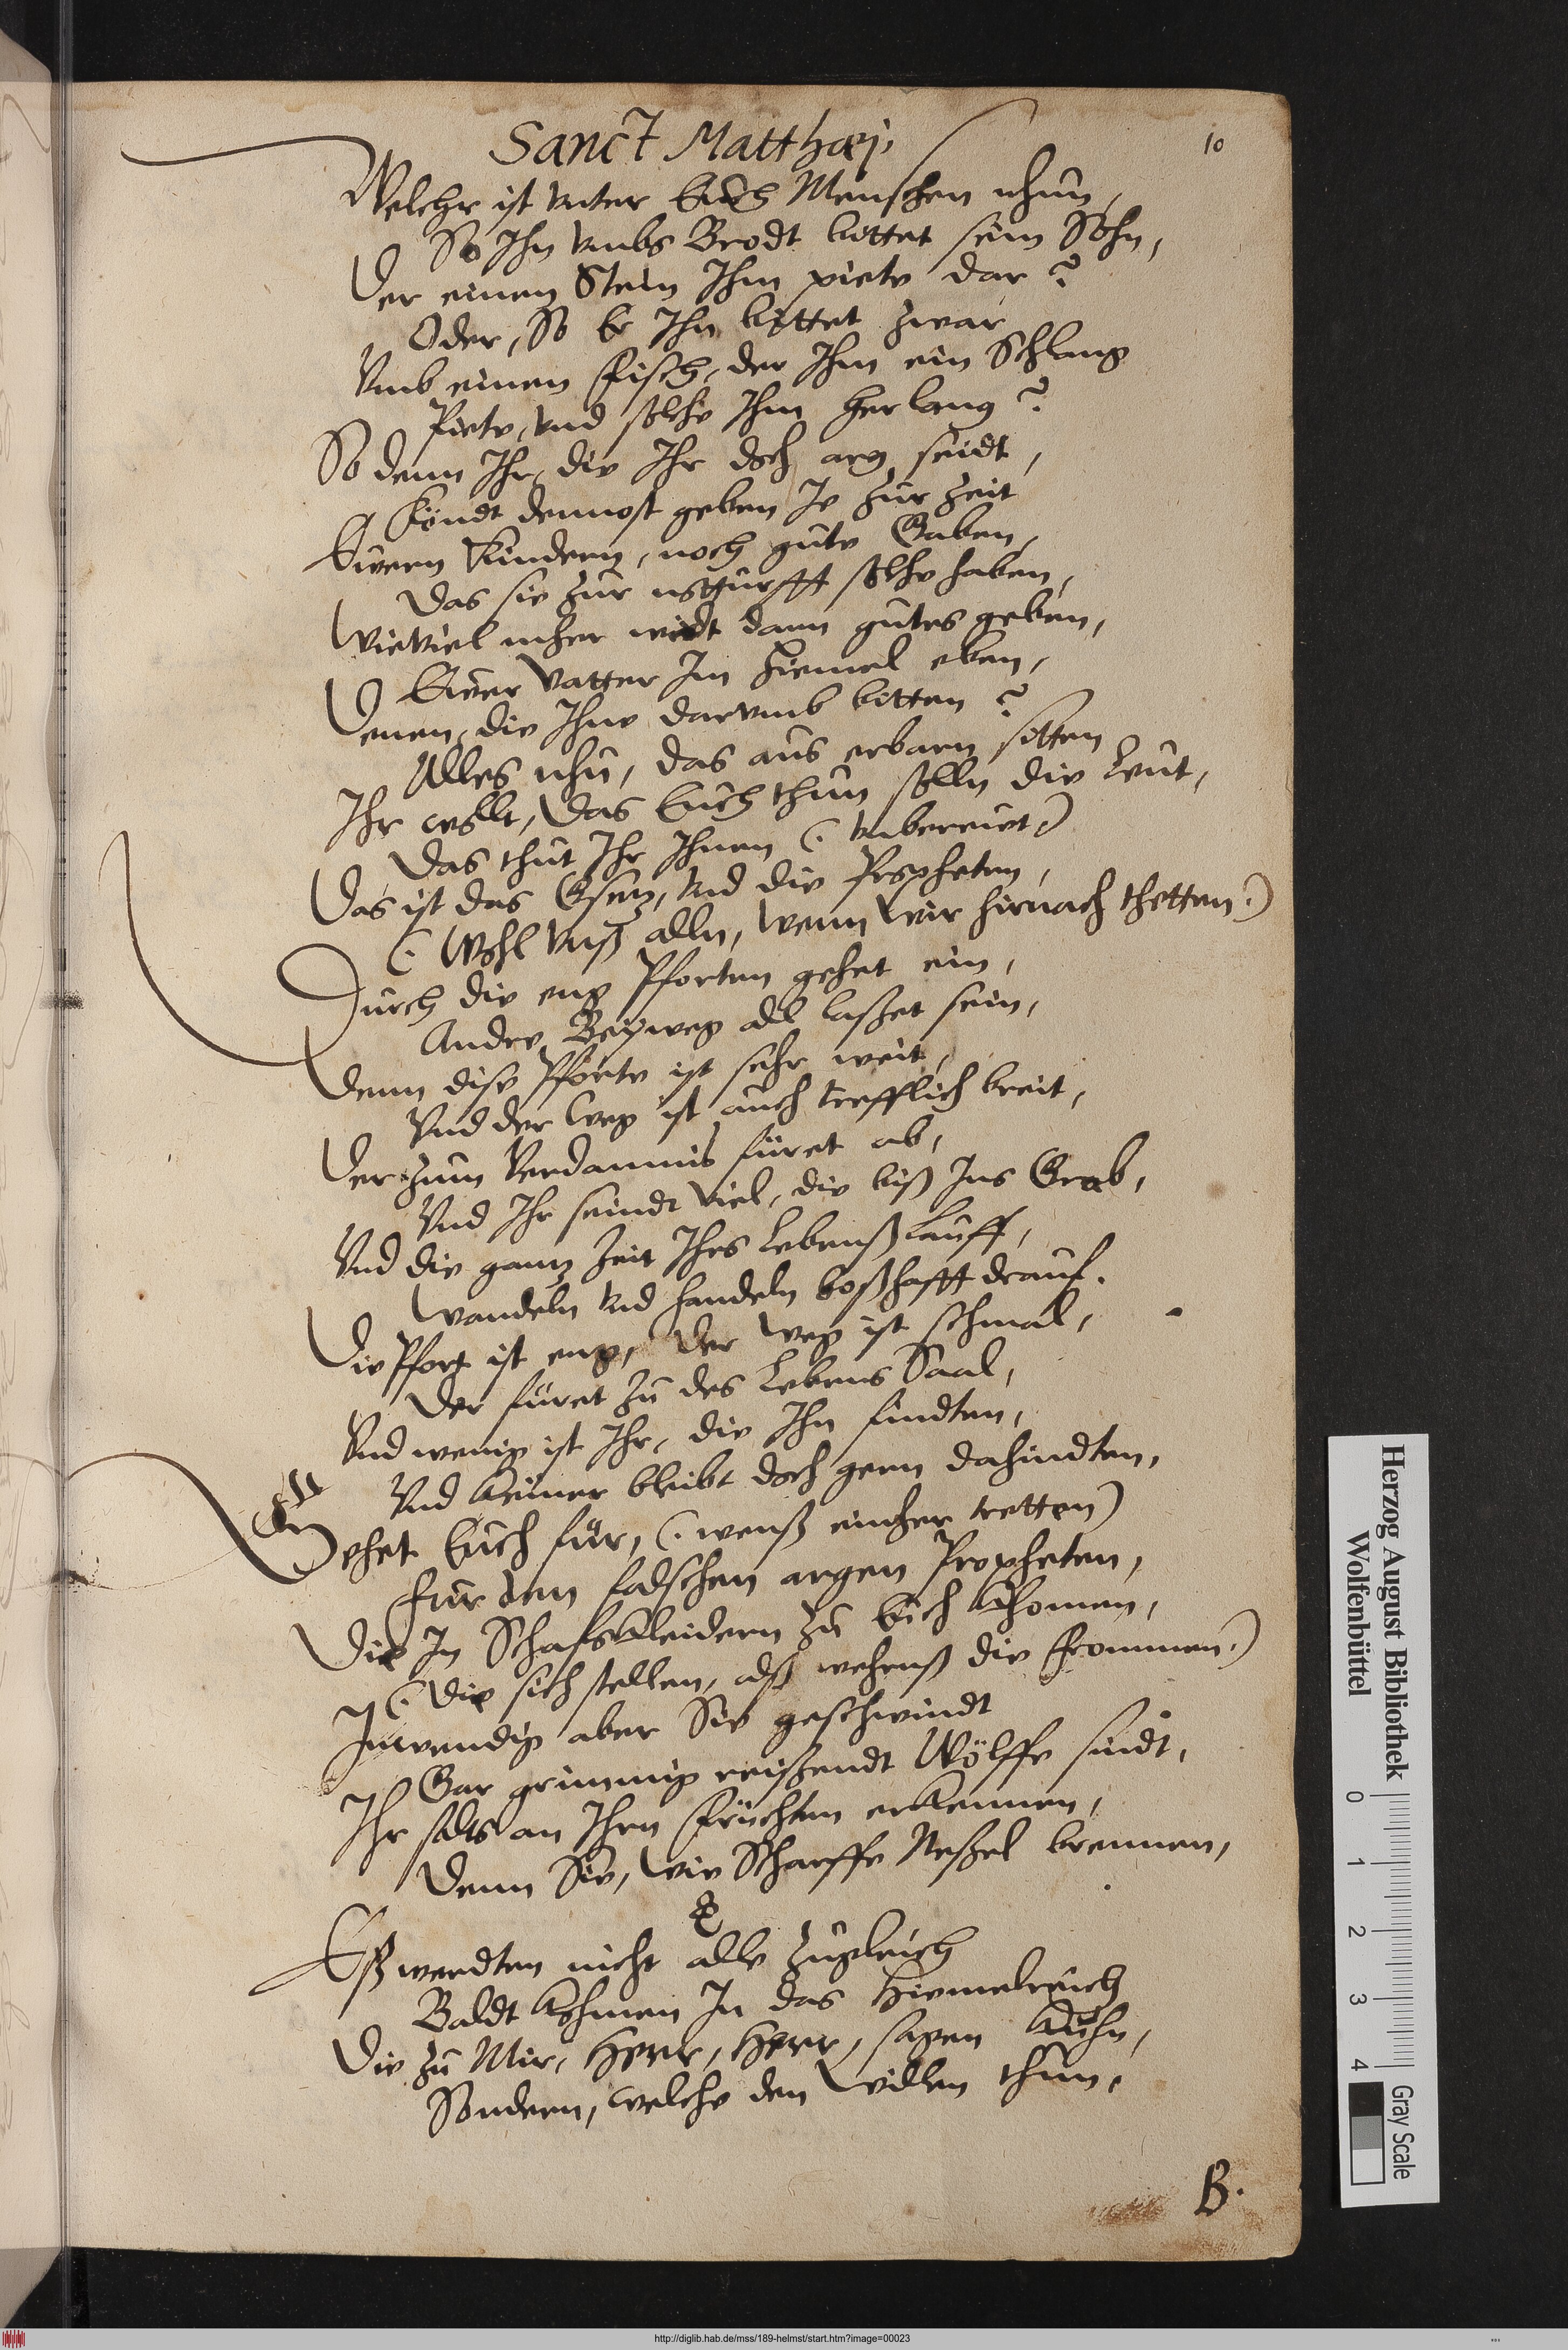 Sanct Matthæj.
10
Welcher ist vnter Euch Menschen nhun,
So Ihn vmbs Brodt bittet sein Sohn,
Der einen Stein Ihm piete dar?
Oder, So Er Ihn bittet zwar
Vmb einen Fisch, der Ihm ein Schlang
Piete, vnd solche Ihm herlang?
So denn Ihr, die Ihr doch arg seidt,
Köndt dennost geben Je zur Zeit
Euern Kindern, noch gute Gaben,
Das sie zur notturfft solche haben,
Wieviel meher wirdt dann gutes geben,
Euer Vatter Im Himel eben,
Denen, die Ihne darvmb bitten?
Alles nhu, das aus erbarn sitten
Ihr wollt, Das Euch thun solln die Leut,
Das thut Ihr Ihnen (: vnbereut)
Das ist das Gsetz, vnd die Propheten,
(: Wohl vnß alln, wenn wir hirnach thetten:)
Durch die eng Pforten gehet ein,
Andre Beyweg all laßet sein,
Denn dise Pforte ist sehr weit,
Vnd der Weg ist auch trefflich breit,
Der zum Verdamnis füret ab,
Vnd Ihr seindt viel, die biß Ins Grab,
Vnd die gantz Zeit Ihrs Lebenß Lauff,
Wandeln vnd handeln boßhafft drauf.
Die Pfort ist eng, Der Weg ist schmal,
Der füret zu des Lebens Saal,
Vnd wenig ist Ihr, die Ihn findten,
Vnd keiner bleibt doch gern dahindten,
Sehet Euch für, (: wenß einher tretten)
Für den falschen argen Propheten,
Die In Schafskleidern zu Euch khomen,
(: Die sich stellen, alß wehrenß die frommen:)
Inwendig aber Sie geschwindt
Gar grimmig reißendt Wölffe sindt,
Ihr solts an Ihrn früchten erkennen,
Denn Sie, wie Scharffe Neßel brennen,
Eß werdten nicht alle zugleich
Baldt kohmen In das Hiemelreich
Die zu Mir, Herr, Herr, sagen kuhn,
Sondern, welche den Willen thun,
B.
Herzog August Bibliothek
Wolfenbüttel
0 1 2 3 4
Gray Scale
http://diglib.hab.de/mss/189-helmst/start.htm?image=00023